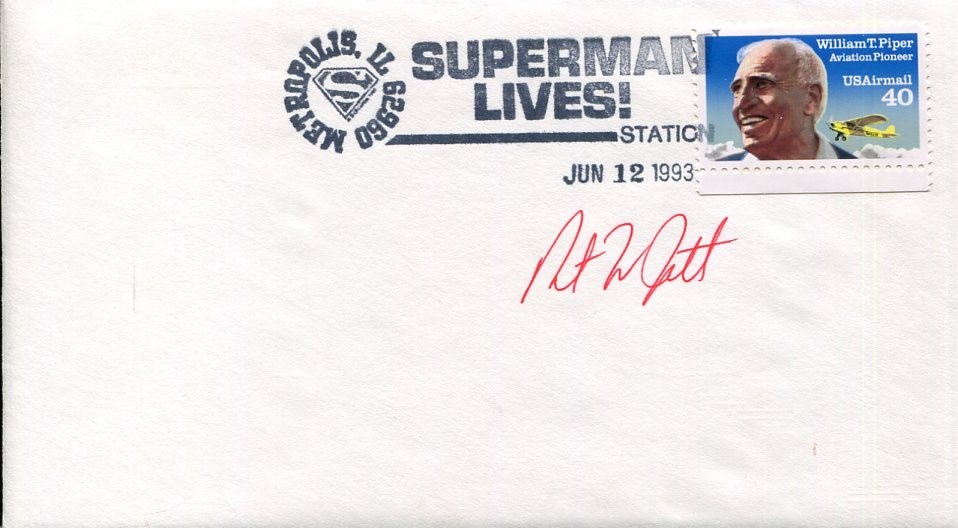 METROPOLIS, IL 62960
S
SUPERMAN
LIVES!
STATION
JUN 12 1993
William T. Piper
Aviation Pioneer
USAirmail
40